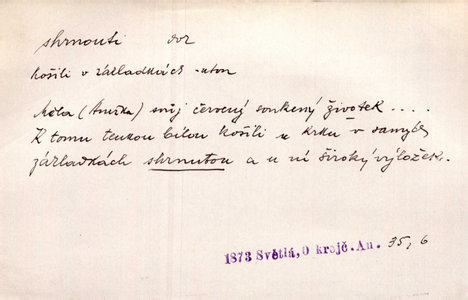 shrnouti dok
Košili v zářladkách -uton
Měla (Anička) svůj červený soukenný životek ....
K tomu tenkou bílou Košili u krku v samých
zářladkách shrnutou a u ní široký výložek.
1873 Světlá, O krejč. An. 35, 6